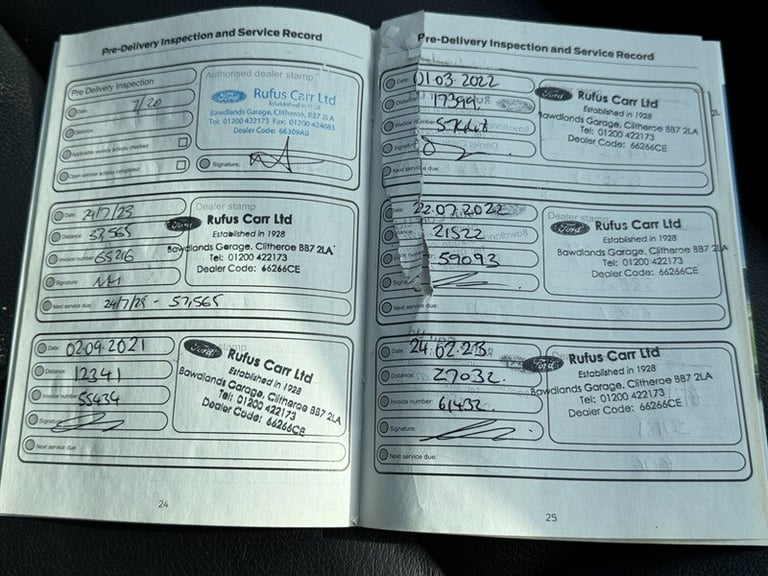 Pre-Delivery Inspection and Service Record
Pre Delivery Inspection
Date: 7/20
Distance:
Applicable service actions checked
Open service actions completed
Authorised dealer stamp
Ford
Rufus Carr Ltd
Established in 1928
Bawdlands Garage, Clitheroe, BB7 2LA
Tel: 01200 422173 Fax: 01200 424683
Dealer Code: 66309AD
Signature:
Date: 24/7/23
Distance:
Invoice number: 65216
Signature:
Next service due:
Dealer stamp
Ford
Rufus Carr Ltd
Established in 1928
Bawdlands Garage, Clitheroe BB7 2LA
Tel: 01200 422173
Dealer Code: 66266CE
Date: 02.09.2021
Distance: 12341
Invoice number: 55434
Signature:
Next service due:
stamp
Ford
Rufus Carr Ltd
Established in 1928
Bawdlands Garage, Clitheroe BB7 2LA
Tel: 01200 422173
Dealer Code: 66266CE
24
Pre-Delivery Inspection and Service Record
Date: 01.03.2022
Distance: 17399
Invoice number:
Signature:
Next service due:
Ford
Rufus Carr Ltd
Established in 1928
Bawdlands Garage, Clitheroe BB7 2LA
Tel: 01200 422173
Dealer Code: 66266CE
Date: 22.07.2022
Distance: 21522
Invoice number: 59093
Signature:
Next service due:
Dealer stamp
Ford
Rufus Carr Ltd
Established in 1928
Bawdlands Garage, Clitheroe BB7 2LA
Tel: 01200 422173
Dealer Code: 66266CE
Date: 24.02.23
Distance: 27032.
Invoice number: 61432.
Signature:
Next service due:
Ford
Rufus Carr Ltd
Established in 1928
Bawdlands Garage, Clitheroe BB7 2LA
Tel: 01200 422173
Dealer Code: 66266CE
25